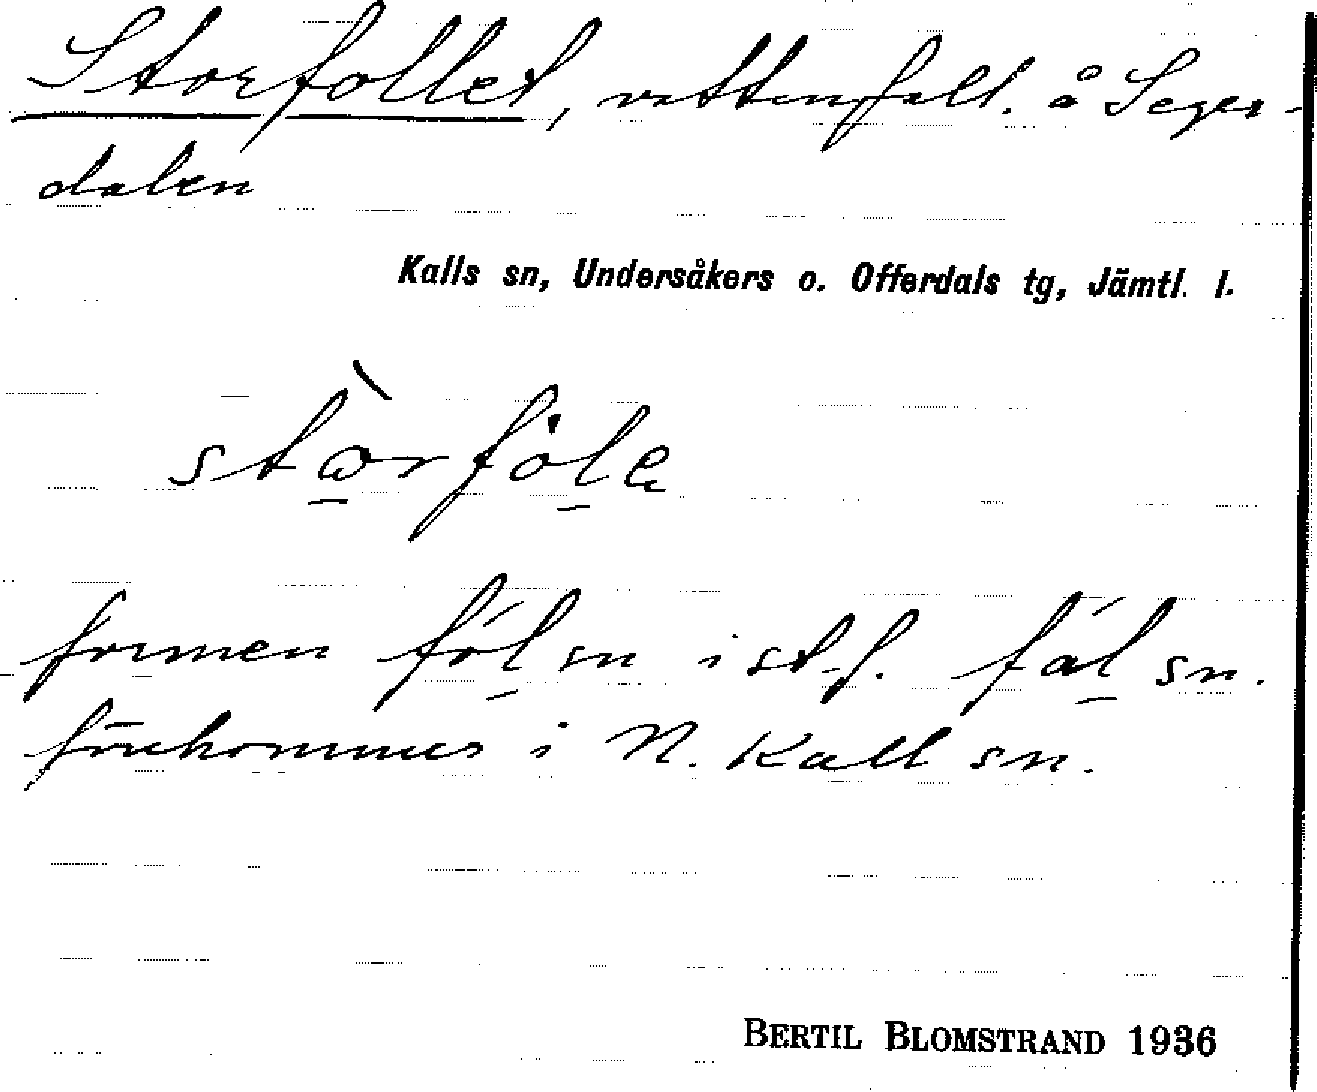 Storfollet, vattenfall. å Seger-
dalen
Kalls sn, Undersåkers o. Offerdals tg, Jämtl. l.
formen föl sn i st.f. fál sn.
förekommer i N. Kall sn.
BERTIL BLOMSTRAND 1936